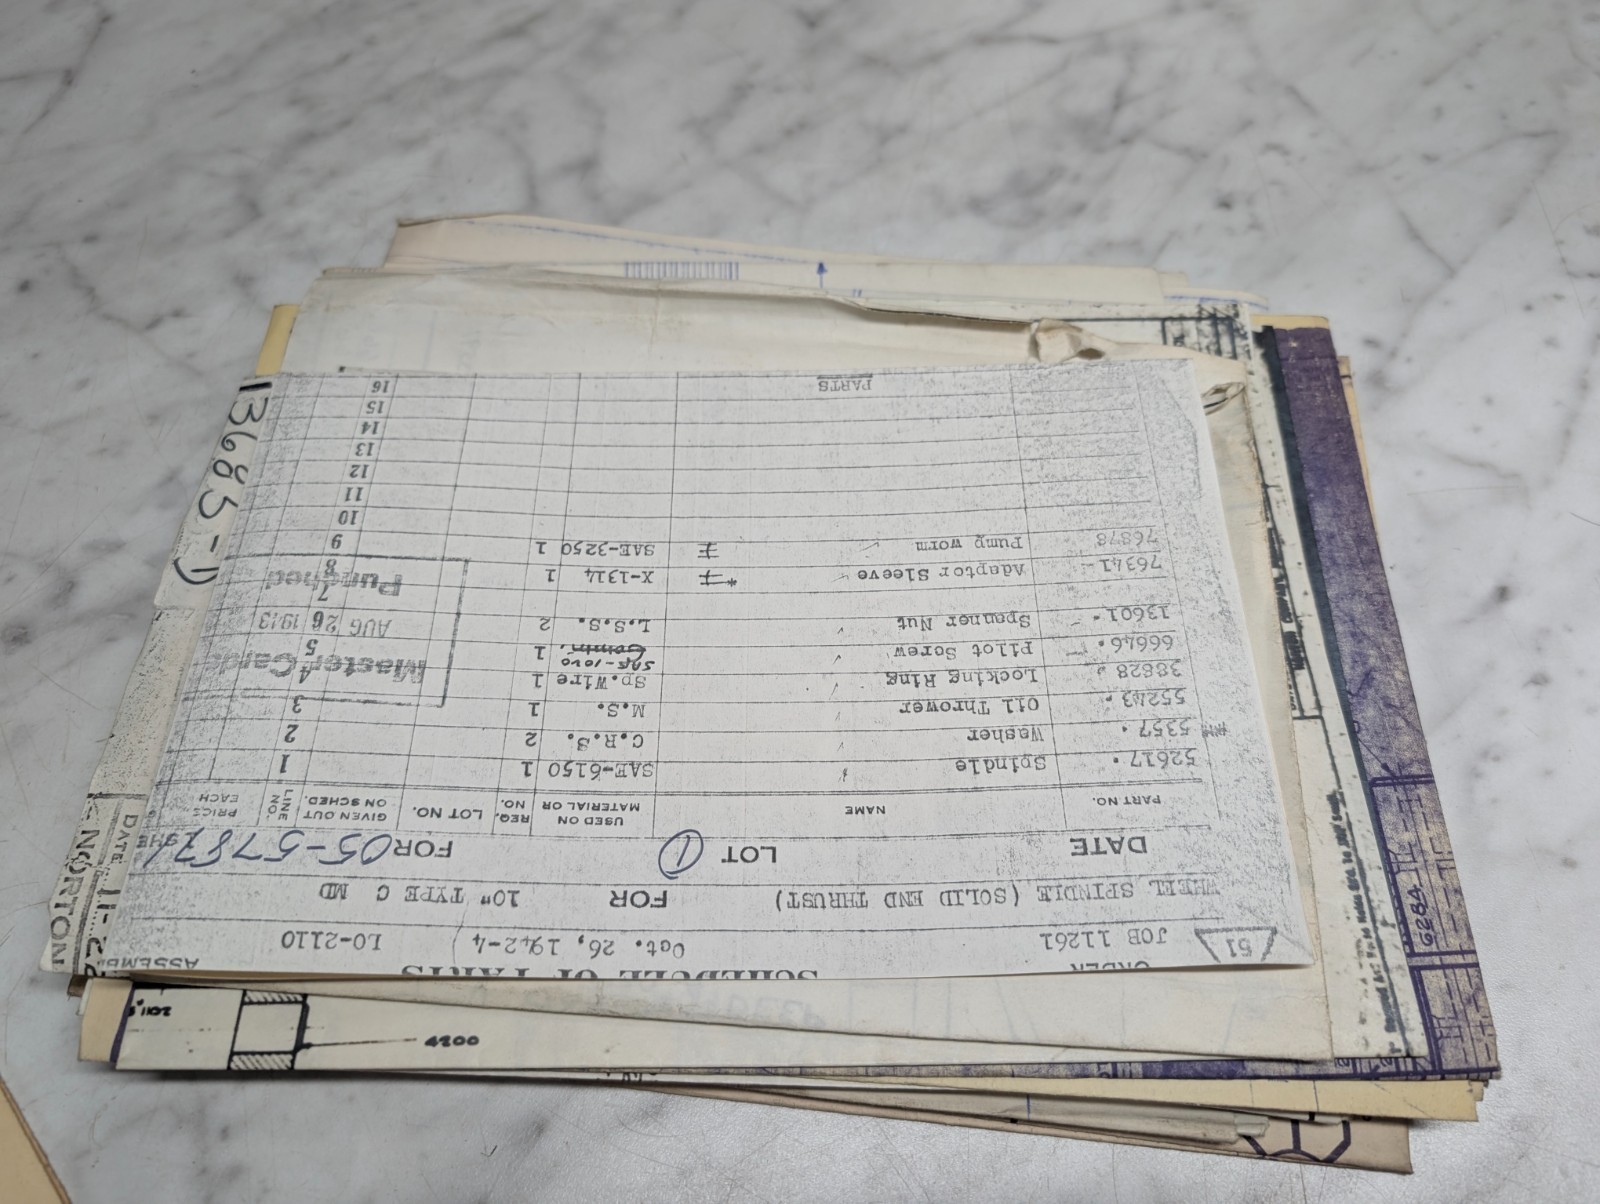 SCHEDULE OF PARTS
ORDER
51
JOB 11261 Oct. 26, 1942-4 LO-2110
WHEEL SPINDLE (SOLID END THRUST) FOR 10" TYPE C MD
DATE LOT 1 FOR 05-5787
PART NO. NAME USED ON MATERIAL OR REQ. NO. LOT NO. GIVEN OUT ON SCHED. LINE NO. PRICE EACH
52617 Spindle SAE-6150 1 1
5357 Washer C.R.S. 2 2
55243 Oil Thrower M.S. 1 3
38628 Locking Ring Sp.Wire 1 4
66646 Pilot Screw SAE-1040 1 5
13601 Spanner Nut L.S.S. 2 6
7
76341 Adaptor Sleeve * X-1314 1 8
76878 Pump worm SAE-3250 1 9
10
11
12
13
14
15
PARTS 16
Master Cards
AUG 26 1943
Punched
13685-1
NORTON
DATE 11-22
ASSEMB
4200
6284